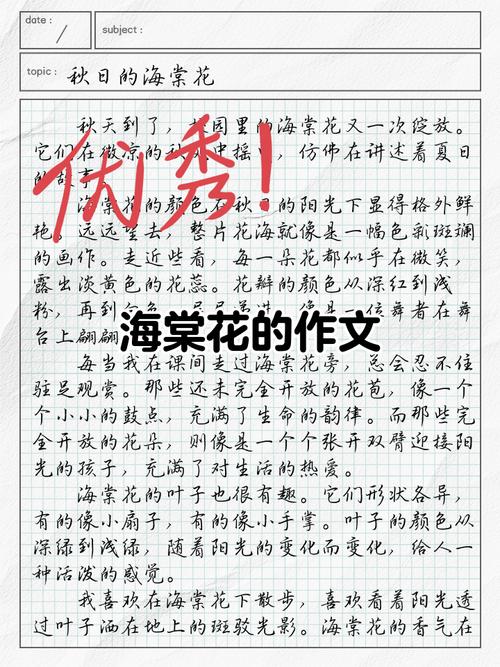 date :
subject :
topic : 秋日的海棠花
秋天到了，校园里的海棠花又一次绽放。
它们在微凉的秋风中摇曳，仿佛在讲述着夏日
的故事。
优秀！
海棠花的颜色在秋日的阳光下显得格外鲜
艳。远远望去，整片花海就像是一幅色彩斑斓
的画作。走近些看，每一朵花都似乎在微笑，
露出淡黄色的花蕊。花瓣的颜色从深红到浅
粉，再到
像是一位舞者在舞
台上翩翩
海棠花的作文
每当我在课间走过海棠花旁，总会忍不住
驻足观赏。那些还未完全开放的花苞，像一个
个小小的鼓点，充满了生命的韵律。而那些完
全开放的花朵，则像是一个个张开双臂迎接阳
光的孩子，充满了对生活的热爱。
海棠花的叶子也很有趣。它们形状各异，
有的像小扇子，有的像小手掌。叶子的颜色从
深绿到浅绿，随着阳光的变化而变化，给人一
种活泼的感觉。
我喜欢在海棠花下散步，喜欢看着阳光透
过叶子洒在地上的斑驳光影。海棠花的香气在